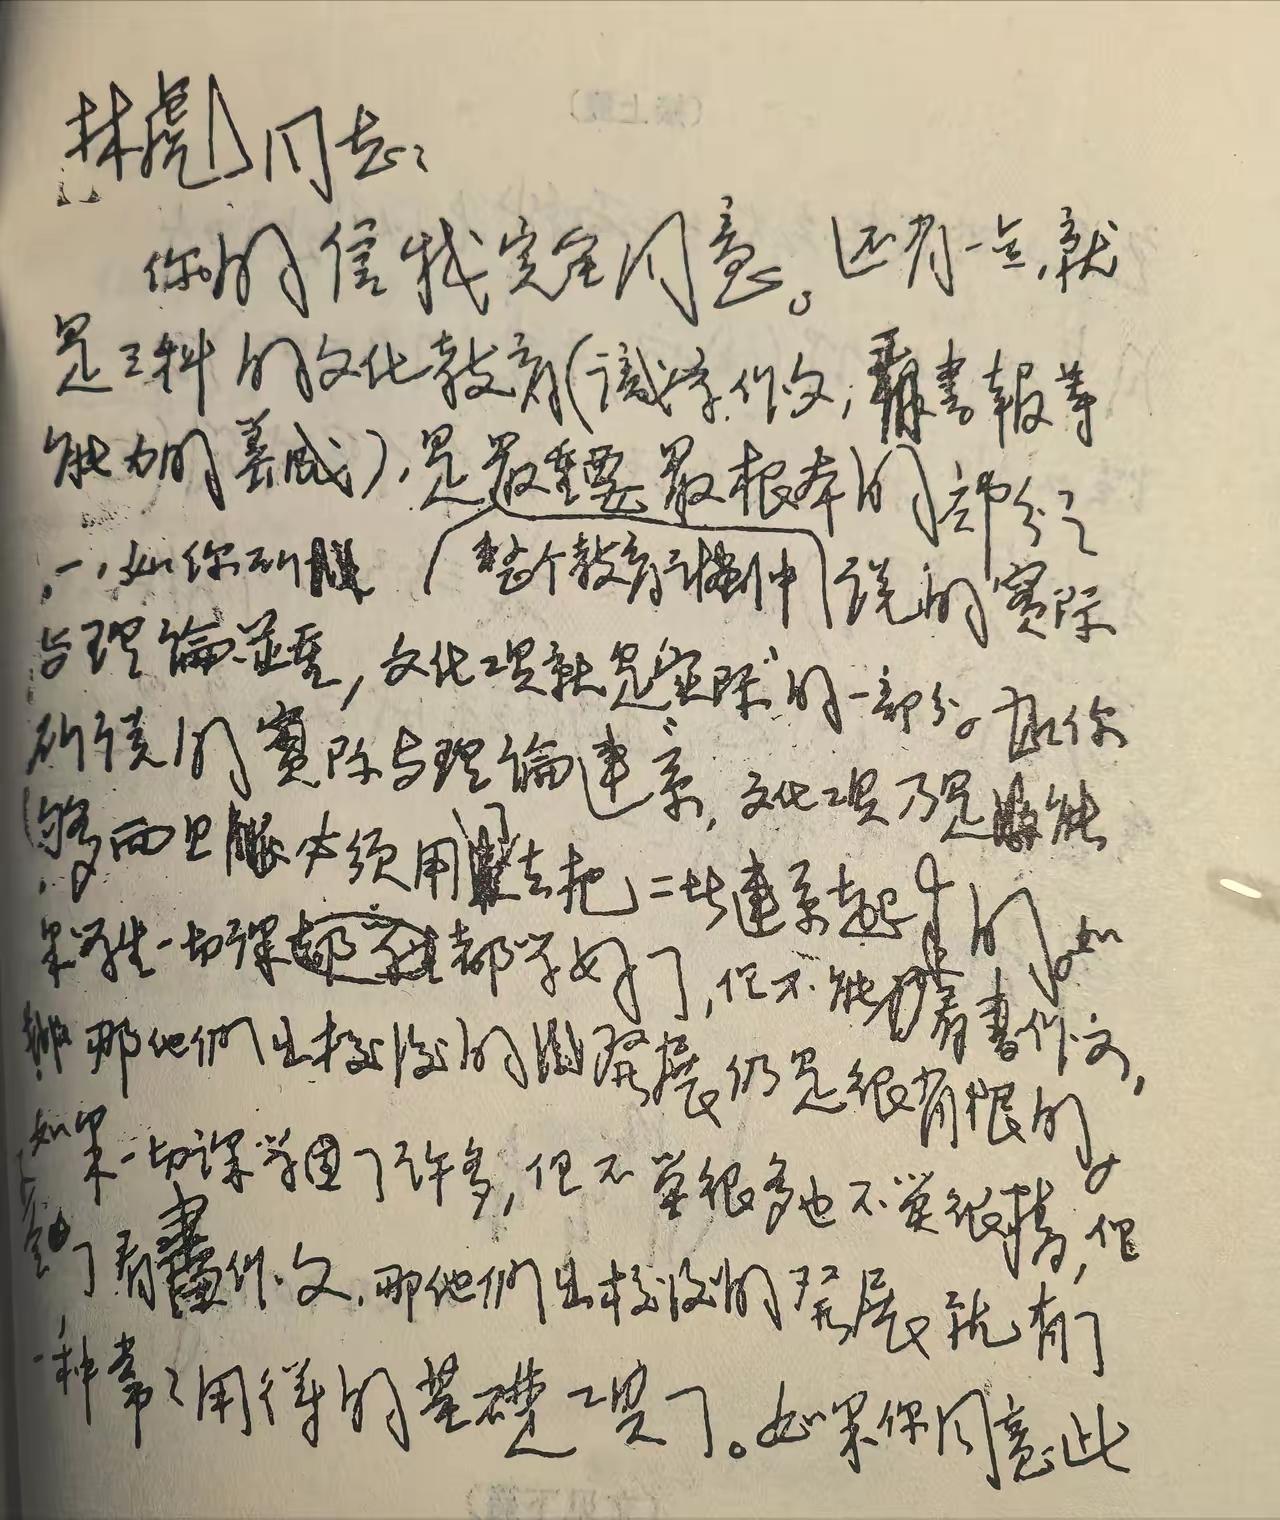 林彪同志：
你的信我完全同意。还有一点，就
是三科的文化教育（识字，作文，看書報等
能力的养成），是最重要最根本的部分之
一，如你所
整个教育計劃中
说的實际
与理論並重，文化工具就是“實际”的一部分。如你
所讀的實际与理論連系，文化工具乃是能
够而且必须用去把二者連系起来的。如
果学生一切课都学好了，但不能看書作文，
那他們出校後的發展仍是很有限的。
如果一切课学了許多，但不算很多也不算很精，但
学了看書作文，那他們出校後的發展就有了
一种常常用得的基礎工具了。如果你同意此